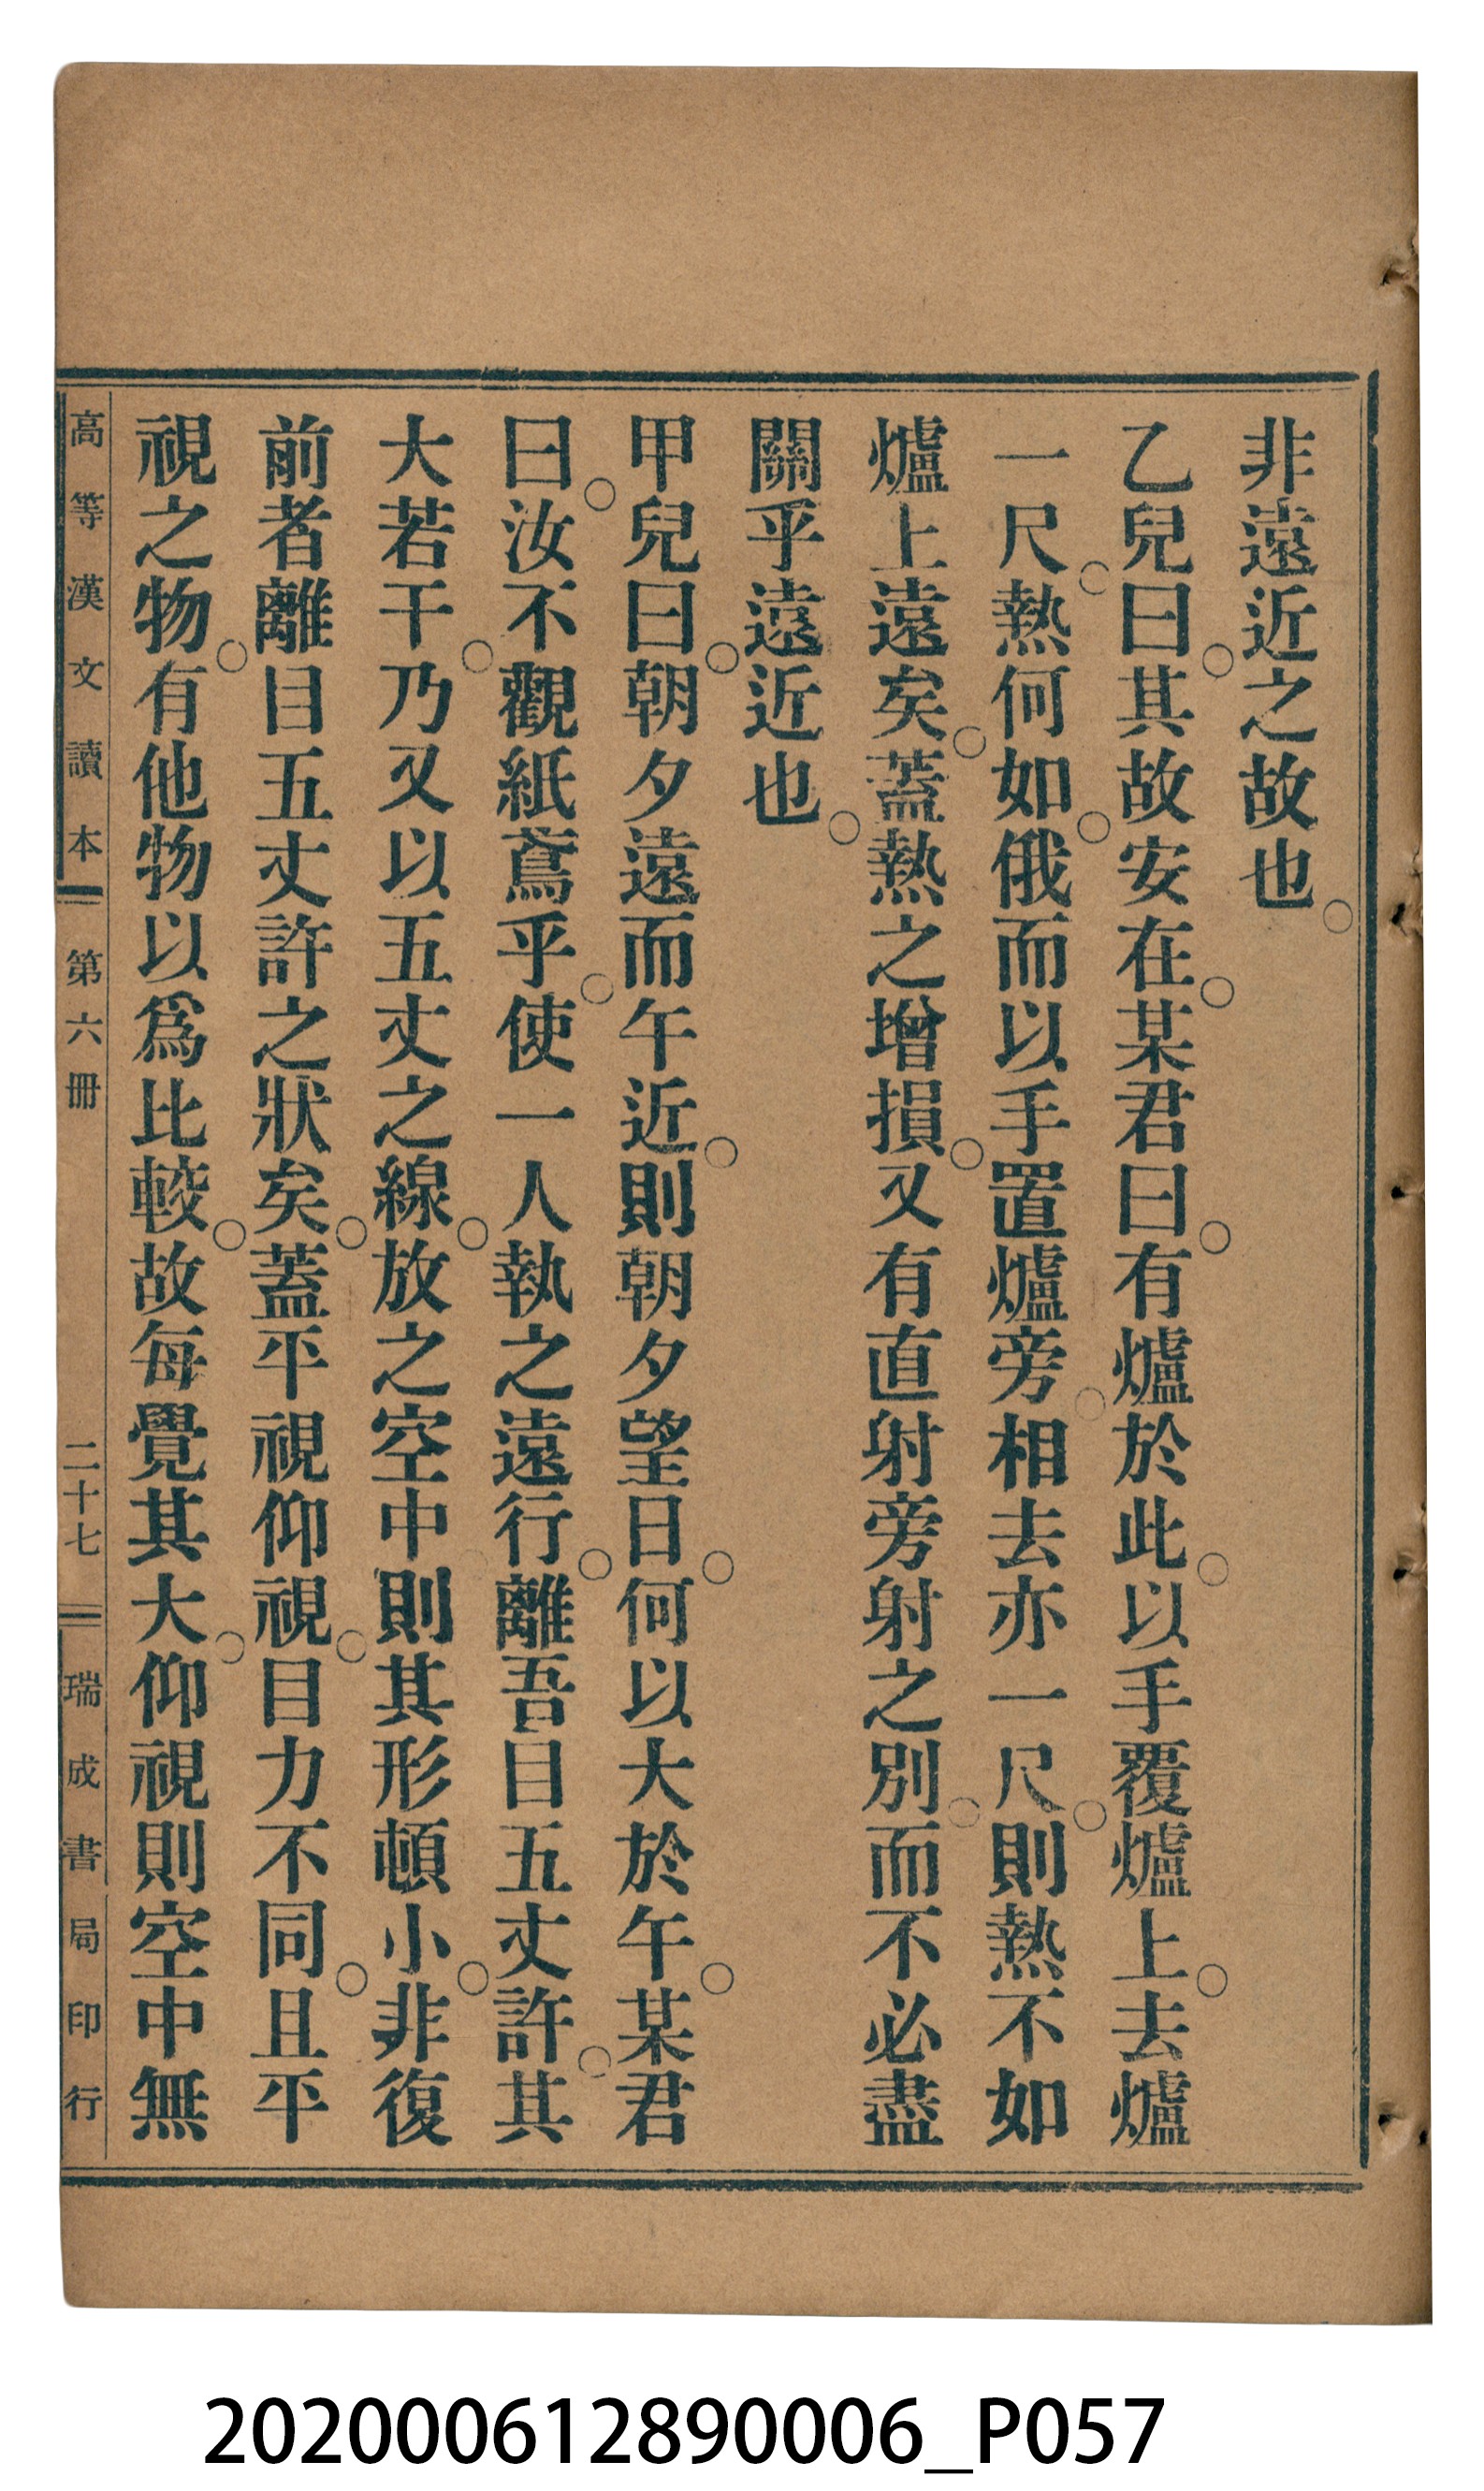 非遠近之故也○
乙兒曰○其故安在○某君曰○有爐於此○以手覆爐上○去爐
一尺○熱何如○俄而以手置爐旁○相去亦一尺○則熱不如
爐上遠矣○蓋熱之增損○又有直射旁射之別○而不必盡
關乎遠近也○
甲兒曰○朝夕遠而午近○則朝夕望日○何以大於午○某君
曰○汝不觀紙鳶乎○使一人執之遠行○離吾目五丈許○其
大若干○乃又以五丈之線○放之空中則其形頓小○非復
前者離目五丈許之狀矣○蓋平視仰視○目力不同○且平
視之物○有他物以爲比較○故每覺其大○仰視則空中無
高等漢文讀本 第六冊 二十七 瑞成書局印行
202000612890006_P057